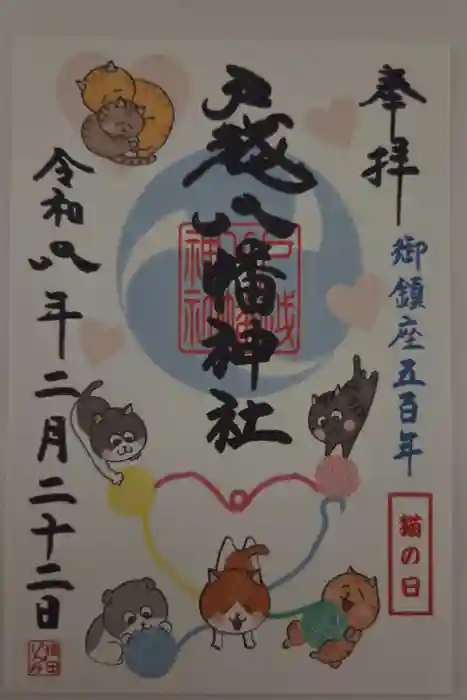 奉拝
御鎮座五百年
猫の日
戸越八幡神社
戸越
八幡
神社
令和八年二月二十二日